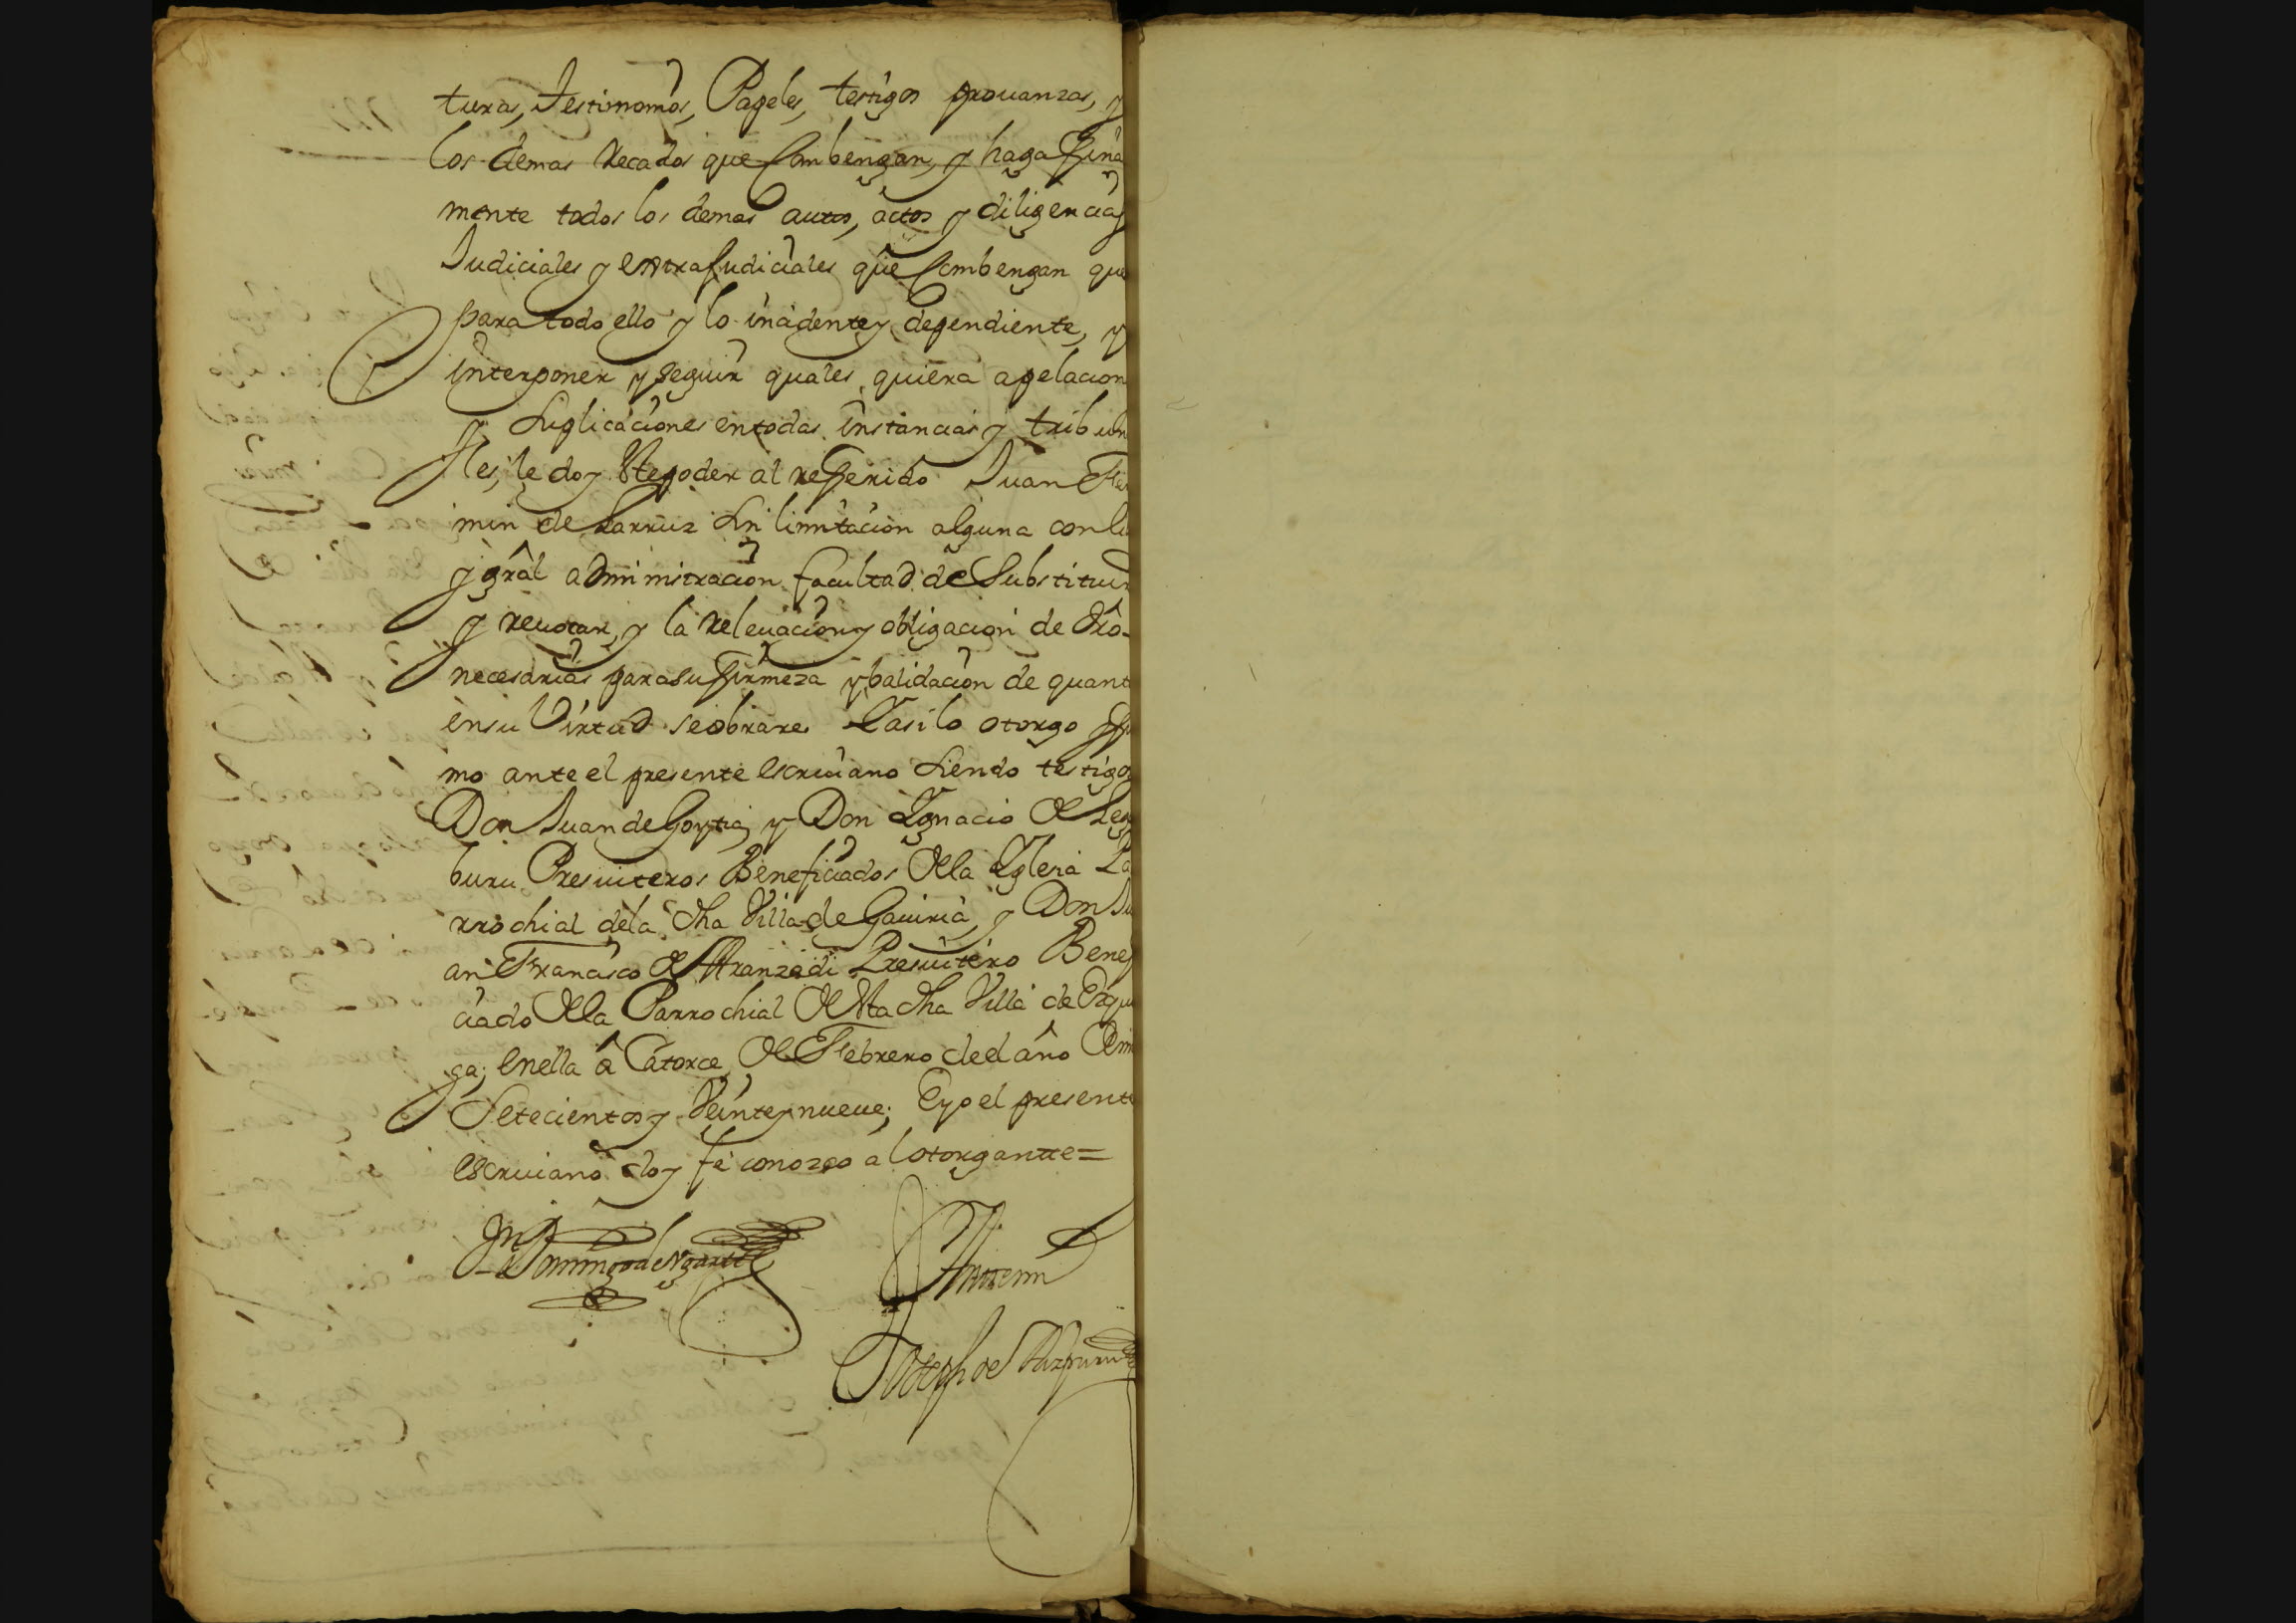 turas, Testimonios, Papeles, testigos prouanzas, y
los demas Recados que Combengan, y haga fina
mente todos los demas autos, actos y diligencias
Judiciales y extraJudiciales que Combengan que
para todo ello y lo inçidente y dependiente, y
interponer y seguir quales quiera apelacion
y Suplicaciones en todas instancias y tribuna
les, le doy este poder al referido Juan Fer
min de Larruz Sin limitacion alguna con li
y gral administracion facultad de Substituir
y reuocar, y la Releuacion y obligacion de dro
necesarias para su firmeza y balidacion de quanto
en su Virtud se obrare Y asi lo otorgo y fir
mo ante el presente escriuano Siendo testigos
Don Juan de Goytia, y Don Ygnacio de
buru Presuiteros Beneficiados de la Yglesia Pa
rrochial de la dha Villa de Gauiria, y Don Ju
an Francisco de Aranzadi Presuitero Benefi
ciado de la Parrochial de esta dha Villa de Ezquio
ga; en ella â Catorce de Febrero de el año de mil
Setecientos y Veinte y nueue; E yo el presente
escriuano doy fe conozco al otorgante =
Domingo de
Ante mi
Joseph de